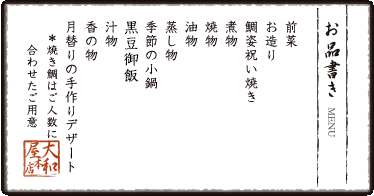 お品書き MENU
前菜
お造り
鯛姿祝い焼き
煮物
焼物
油物
蒸し物
季節の小鍋
黒豆御飯
汁物
香の物
月替りの手作りデザート
＊焼き鯛はご人数に
合わせたご用意
大和屋本店